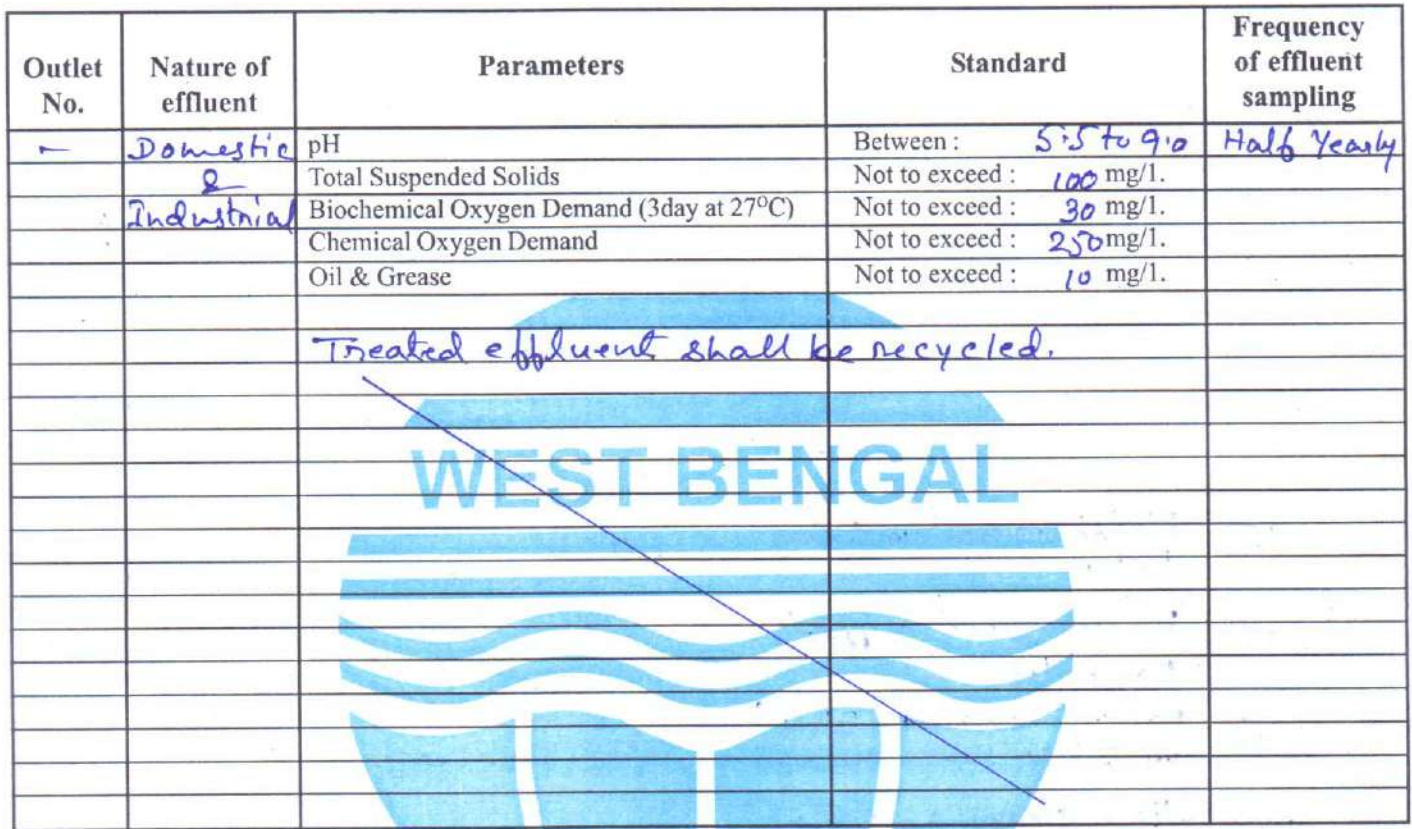 Outlet No. Nature of effluent Parameters Standard Frequency of effluent sampling
- Domestic pH Between : 5.5 to 9.0 Half Yearly
& Total Suspended Solids Not to exceed : 100 mg/l.
Industrial Biochemical Oxygen Demand (3day at 27⁰C) Not to exceed : 30 mg/l.
Chemical Oxygen Demand Not to exceed : 250 mg/l.
Oil & Grease Not to exceed : 10 mg/l.
Treated effluent shall be recycled.
WEST BENGAL